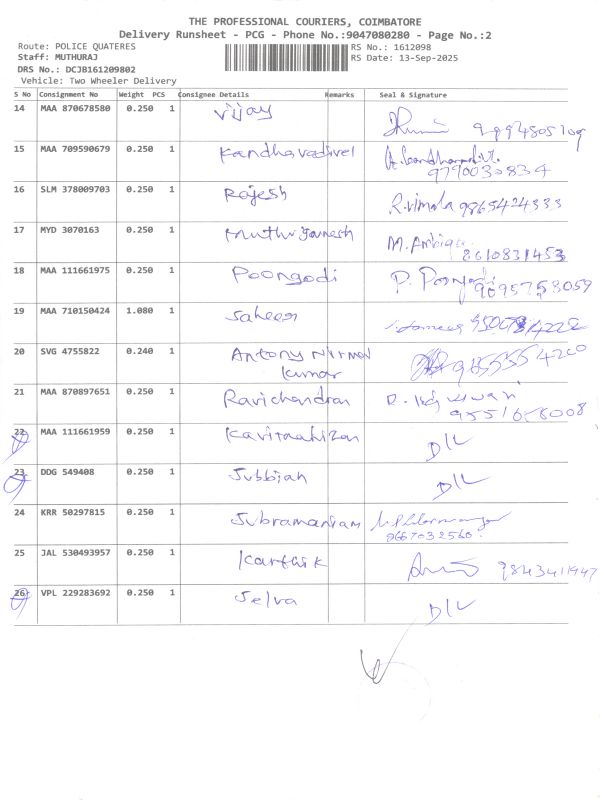 THE PROFESSIONAL COURIERS, COIMBATORE
Delivery Runsheet - PCG - Phone No.:9047080280 - Page No.:2
Route: POLICE QUATERES RS No.: 1612098
Staff: MUTHURAJ RS Date: 13-Sep-2025
DRS No.: DCJB161209802
Vehicle: Two Wheeler Delivery
S No Consignment No Weight PCS Consignee Details Remarks Seal & Signature
14 MAA 870678580 0.250 1 Vijay
15 MAA 709590679 0.250 1 Kandhavadivel
9790030834
16 SLM 378009703 0.250 1 Rajesh R.Vimala 9865424333
17 MYD 3070163 0.250 1 Muthu Ganesh M. Ambiga
8610831453
18 MAA 111661975 0.250 1 Poongodi P.
9095753059
19 MAA 710150424 1.080 1
20 SVG 4755822 0.240 1 Antony Nirmal
Kumar
21 MAA 870897651 0.250 1 Ravichandran R.
22 MAA 111661959 0.250 1 D/L
23 DDG 549408 0.250 1 Subbiah D/L
24 KRR 50297815 0.250 1 Subramaniam
9667032560
25 JAL 530493957 0.250 1 Karthik 9843411947
26 VPL 229283692 0.250 1 Selva D/L